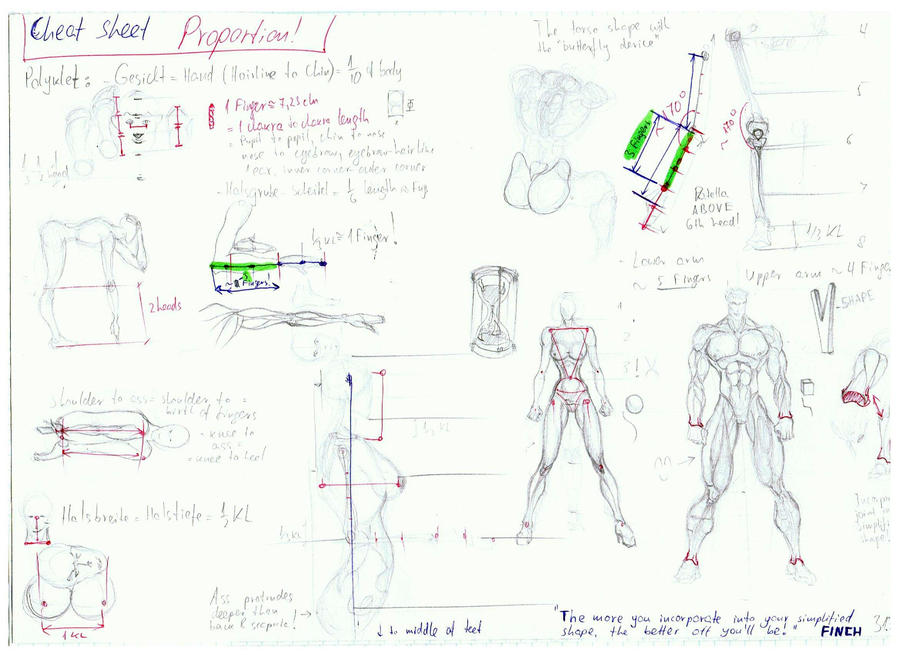 Cheat sheet Proportion!
Polyklet: - Gesicht = Hand (Hairline to Chin) = 1/10 of body
1 Finger ≈ 7,23 cm
length
= Pupil to pupil, chin to nose
nose to eyebrow, eyebrow-hairline
ear, inner corner-outer corner
- Halsgrube - Scheitel = 1/6 length
The torso shape with
the "butterfly device"
170°
3 Fingers
~170°
Patella
ABOVE
6th head!
4
5
6
7
8
1/2 KL
≈ 1 Finger!
Fingers!
2 heads
- Lower arm
~ 5 Fingers
Upper arm ~ 4 Finger
V-SHAPE
1
2
3!X
shoulder to ass = shoulder to
birth of fingers
- knee to
ass =
= knee to heel
Halsbreite = Halstiefe = 1/2 KL
1 KL
Ass protrudes
deeper than
back & scapula!
↓ to middle of feet
Incorpor
joint
simplifi
shape!
"The more you incorporate into your simplified
shape, the better off you'll be!" FINCH